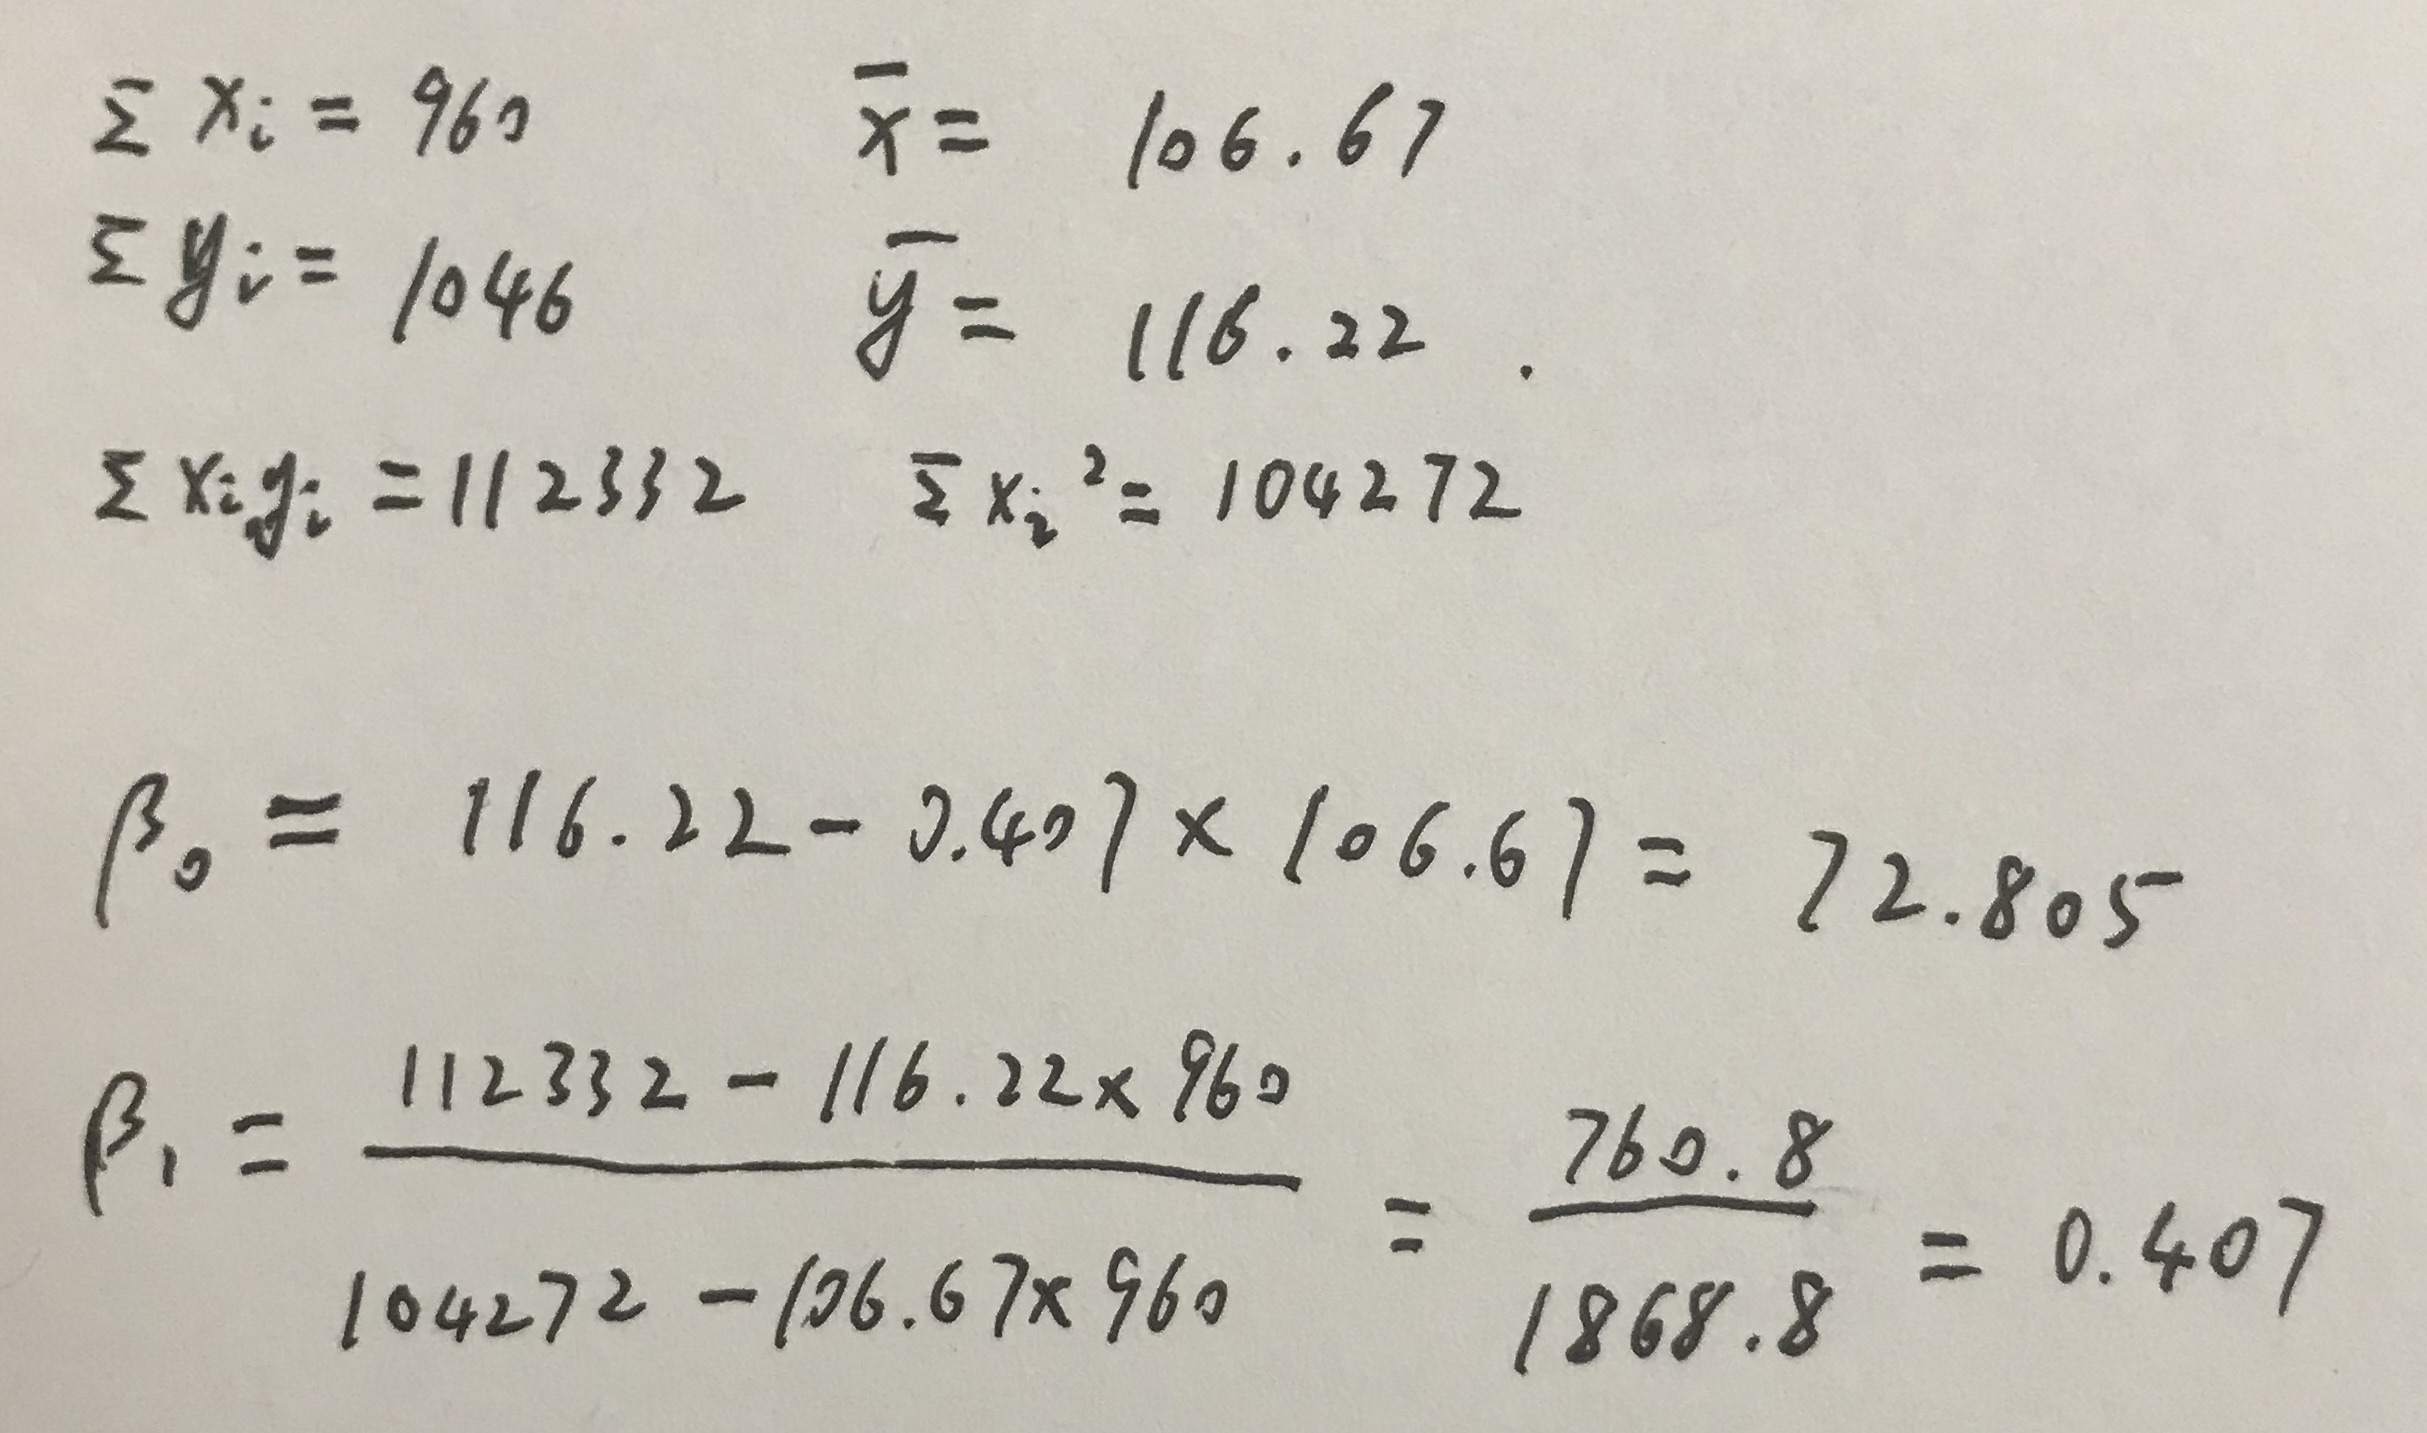 Σ xᵢ = 960 x̄ = 106.67
Σ yᵢ = 1046 ȳ = 116.22 .
Σ xᵢyᵢ = 112332 Σ xᵢ² = 104272
β₀ = 116.22 - 0.407 × 106.67 = 72.805
β₁ = (112332 - 116.22 × 960) / (104272 - 106.67 × 960) = 760.8 / 1868.8 = 0.407